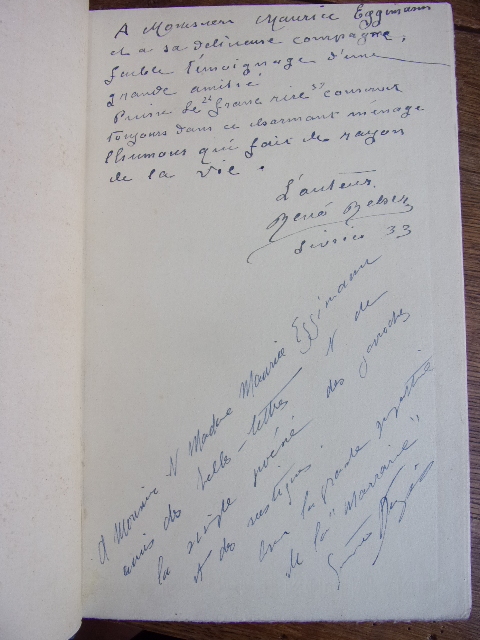 A Monsieur Maurice Eggimann
et a sa delicieuse compagne,
faible témoignage d'une
grande amitié
Puisse Le "franc rire" conserver
toujours dans ce charmant ménage
l'humour qui fait le rayon
de la vie.
L'auteur
René
Février 33
A Monsieur & Madame Maurice Eggimann
amis des Belles-lettres & de
la simple poésie des
& des vestiges.
la grande sympathie
de la